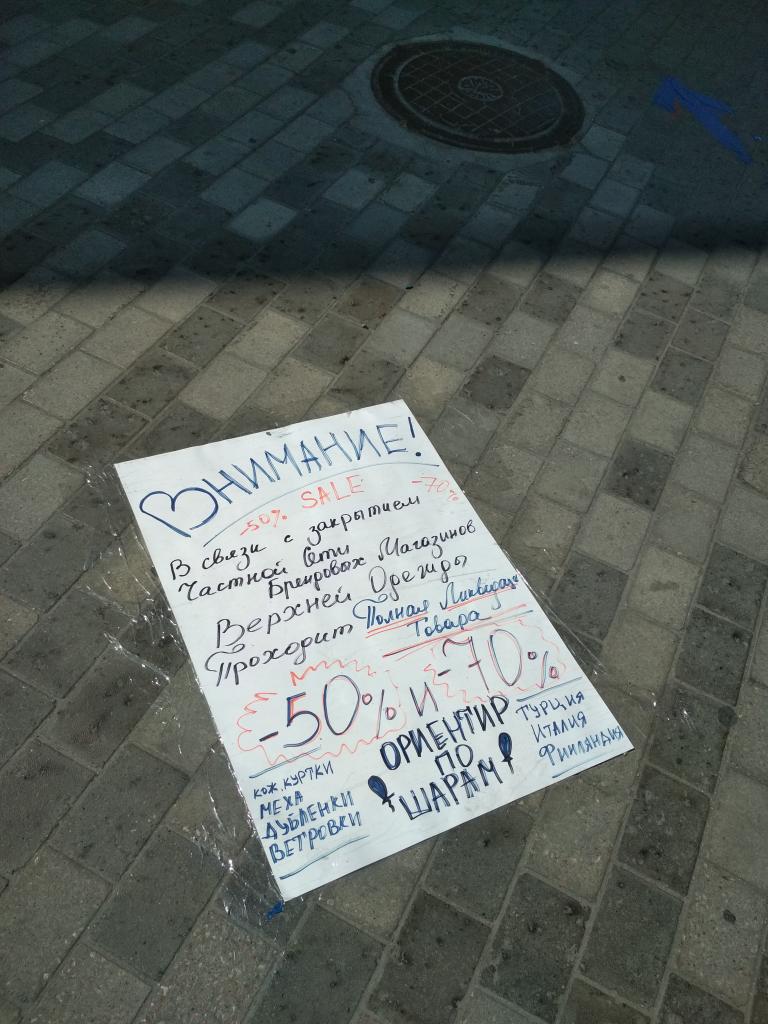 ВНИМАНИЕ!
-50% SALE -70%
В связи с закрытием
Частной Сети
Брендовых Магазинов
Верхней Одежды
Проходит Полная Ликвидация
Товара
-50% и -70%
КОЖ. КУРТКИ
МЕХА
ДУБЛЕНКИ
ВЕТРОВКИ
ОРИЕНТИР
ПО
ШАРАМ
ТУРЦИЯ
ИТАЛИЯ
ФИНЛЯНДИЯ